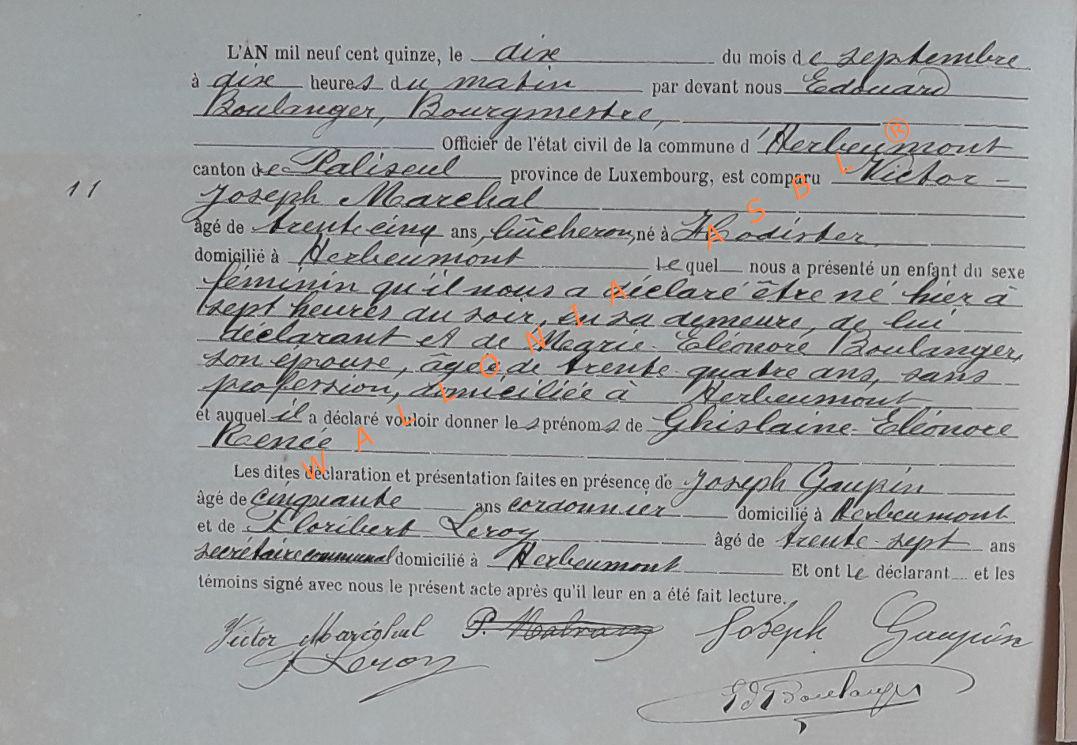 L'AN mil neuf cent quinze, le dix du mois de septembre
à dix heures du matin par devant nous Edouard
Boulanger, Bourgmestre,
Officier de l'état civil de la commune d'Herbeumont
canton de Paliseul province de Luxembourg, est comparu Victor-
11
Joseph Marchal
âgé de trente cinq ans, bûcheron, né à Hodister
domicilié à Herbeumont Lequel nous a présenté un enfant du sexe
féminin qu'il nous a déclaré être né hier à
sept heures du soir, en sa demeure, de lui
déclarant et de Marie-Eléonore Boulanger,
son épouse, âgée de trente-quatre ans, sans
profession, domiciliée à Herbeumont
et auquel il a déclaré vouloir donner les prénoms de Ghislaine-Eléonore
Renée
Les dites déclaration et présentation faites en présence de Joseph Gaupin
âgé de cinquante ans cordonnier domicilié à Herbeumont
et de Floribert Leroy âgé de trente-sept ans
secrétaire communal domicilié à Herbeumont Et ont le déclarant et les
témoins signé avec nous le présent acte après qu'il leur en a été fait lecture.
Victor Maréchal P. Joseph Gaupin
F Leroy
Ed Boulanger
WALLONIA ASBL ®